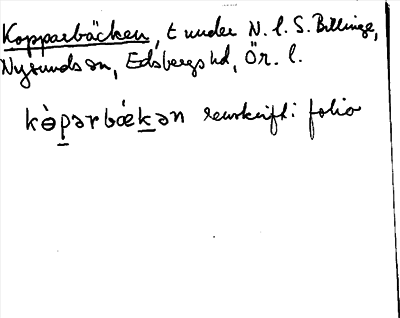 Kopparbäcken, t under N. l. S. Billinge,
Nysunds sn, Edsbergs hd, Ör. l.
kɵ̀pərbǽkən renskrift: folio